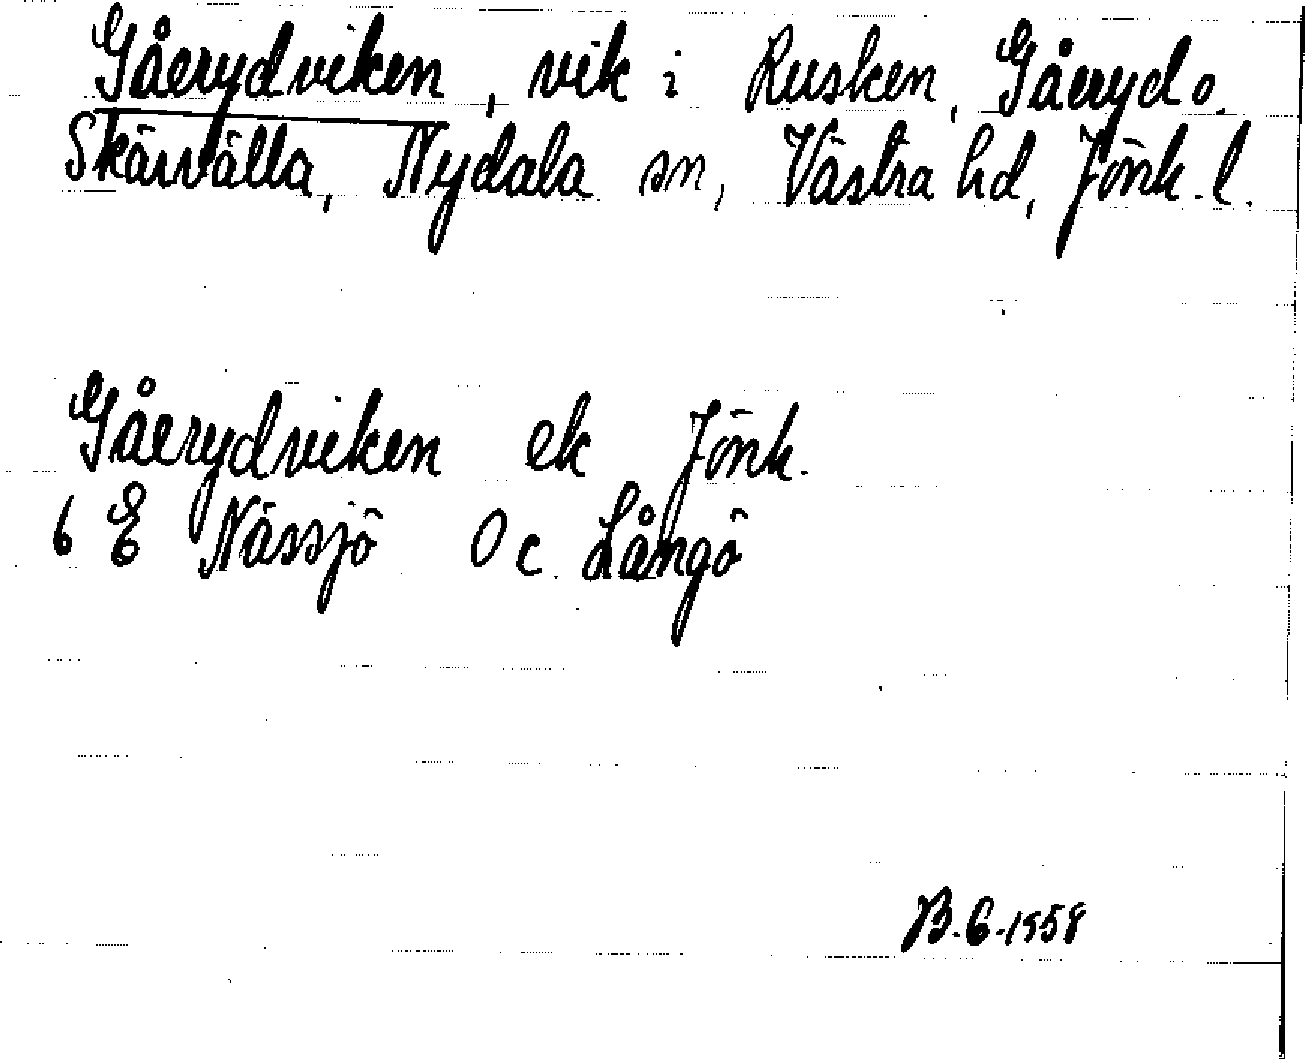 Gåerydviken, vik i Rusken, Gåeryd o.
Skärvålla, Nydala sn, Västra hd, Jönk. l.
Gåerydviken ek Jönk.
6 E Nässjö 0 c Långö
B. G. 1958